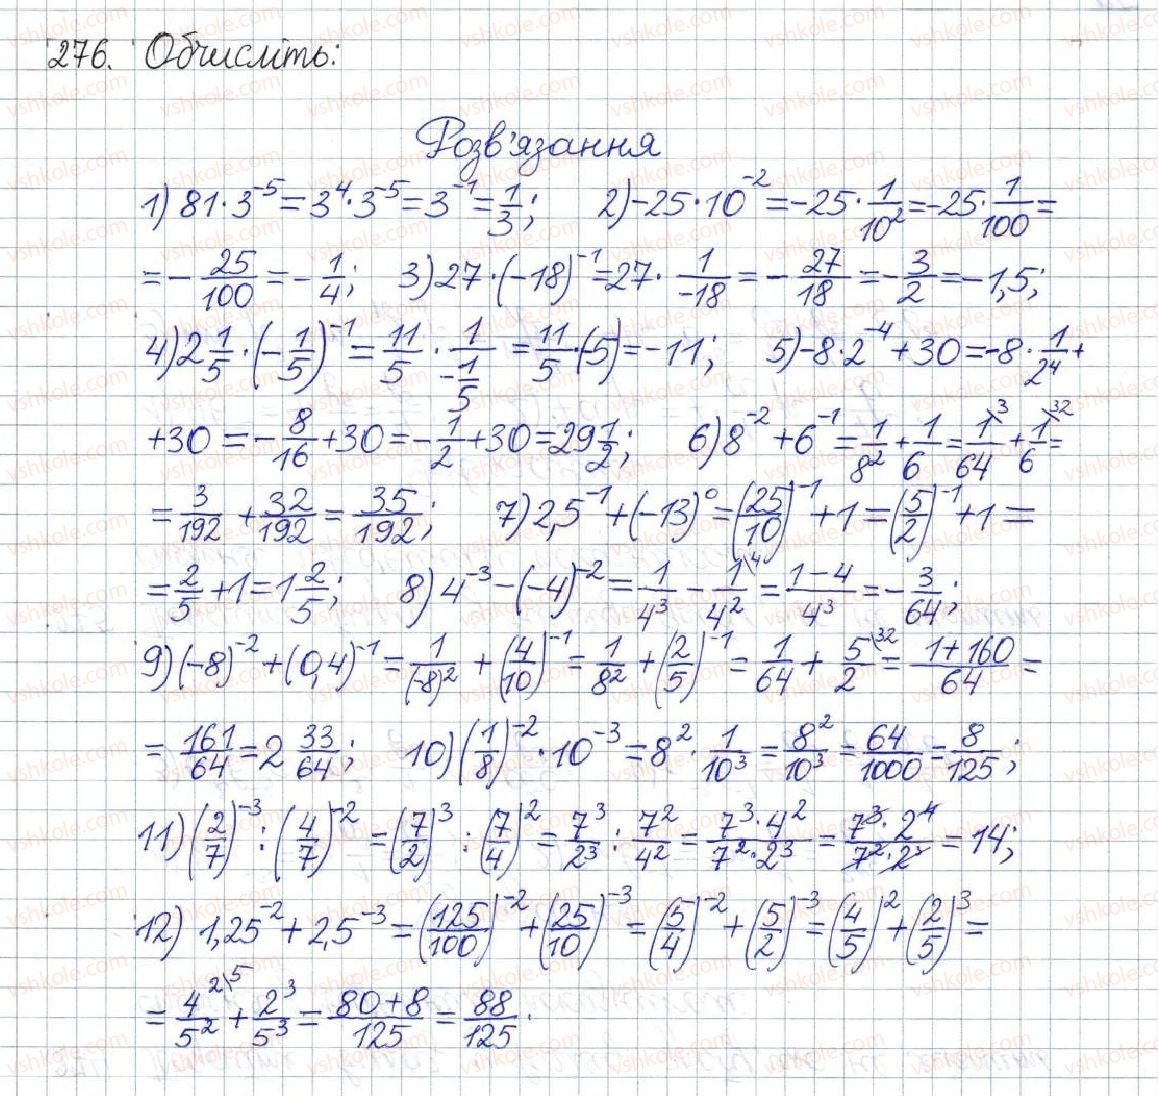 276. Обчисліть:
Розв'язання
1) 81·3⁻⁵=3⁴·3⁻⁵=3⁻¹=1/3; 2) -25·10⁻²=-25·1/10²=-25·1/100=
=-25/100=-1/4; 3) 27·(-18)⁻¹=27·1/-18=-27/18=-3/2=-1,5;
4) 2 1/5·(-1/5)⁻¹=11/5·1/(-1/5)=11/5·(-5)=-11; 5) -8·2⁻⁴+30=-8·1/2⁴+
+30=-8/16+30=-1/2+30=29 1/2; 6) 8⁻²+6⁻¹=1/8²+1/6=1\³/64+1\³²/6=
=3/192+32/192=35/192; 7) 2,5⁻¹+(-13)⁰=(25/10)⁻¹+1=(5/2)⁻¹+1=
=2/5+1=1 2/5; 8) 4⁻³-(-4)⁻²=1/4³-1\⁴/4²=(1-4)/4³=-3/64;
9) (-8)⁻²+(0,4)⁻¹=1/(-8)²+(4/10)⁻¹=1/8²+(2/5)⁻¹=1/64+5\³²/2=(1+160)/64=
=161/64=2 33/64; 10) (1/8)⁻²·10⁻³=8²·1/10³=8²/10³=64/1000=8/125;
11) (2/7)⁻³:(4/7)⁻²=(7/2)³:(7/4)²=7³/2³:7²/4²=(7³·4²)/(7²·2³)=(7³·2⁴)/(7²·2³)=14;
12) 1,25⁻²+2,5⁻³=(125/100)⁻²+(25/10)⁻³=(5/4)⁻²+(5/2)⁻³=(4/5)²+(2/5)³=
=4²\⁵/5²+2³/5³=(80+8)/125=88/125.